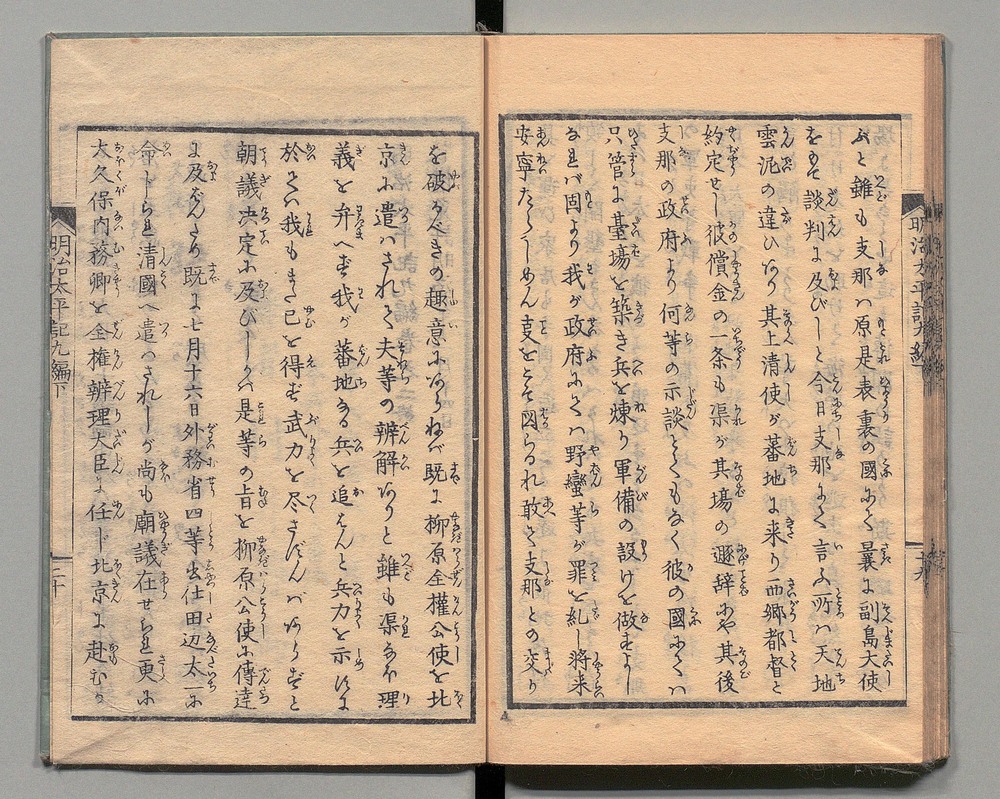 明治太平記九編
十九
ふと雖も支那ハ原是表裏の國にて曩に副島大使
をもて談判に及びしと今日支那にて言ふ所ハ天地
雲泥の違ひあり其上清使が蕃地に来り西郷都督と
約定せし彼償金の一条も渠が其場の遁辞にや其後
支那の政府より何等の示談とてもなく彼の國にてハ
只管に臺場を築き兵を煉り軍備の設けを做すよし
なれバ固より我が政府にてハ野蠻等が罪を糺し将来
安寧たらしめん支をとて図られ敢て支那との交り
を破るべきの趣意にあらねバ既に柳原全權公使を北
京に遣ハされて夫等の辨解ありと雖も渠なほ理
義を弁へず我が蕃地なる兵を追はんと兵力を示すに
於てハ我もまた已を得ず武力を尽さずんバあらずと
朝議決定に及びしかバ是等の旨を柳原公使に傳達
に及ばんため既に七月十六日外務省四等出仕田辺太一に
命じられ清國へ遣ハされしが尚も廟議在せられ更に
大久保内務卿を全権辨理大臣に任じ北京に赴むか
明治太平記九編下
二十